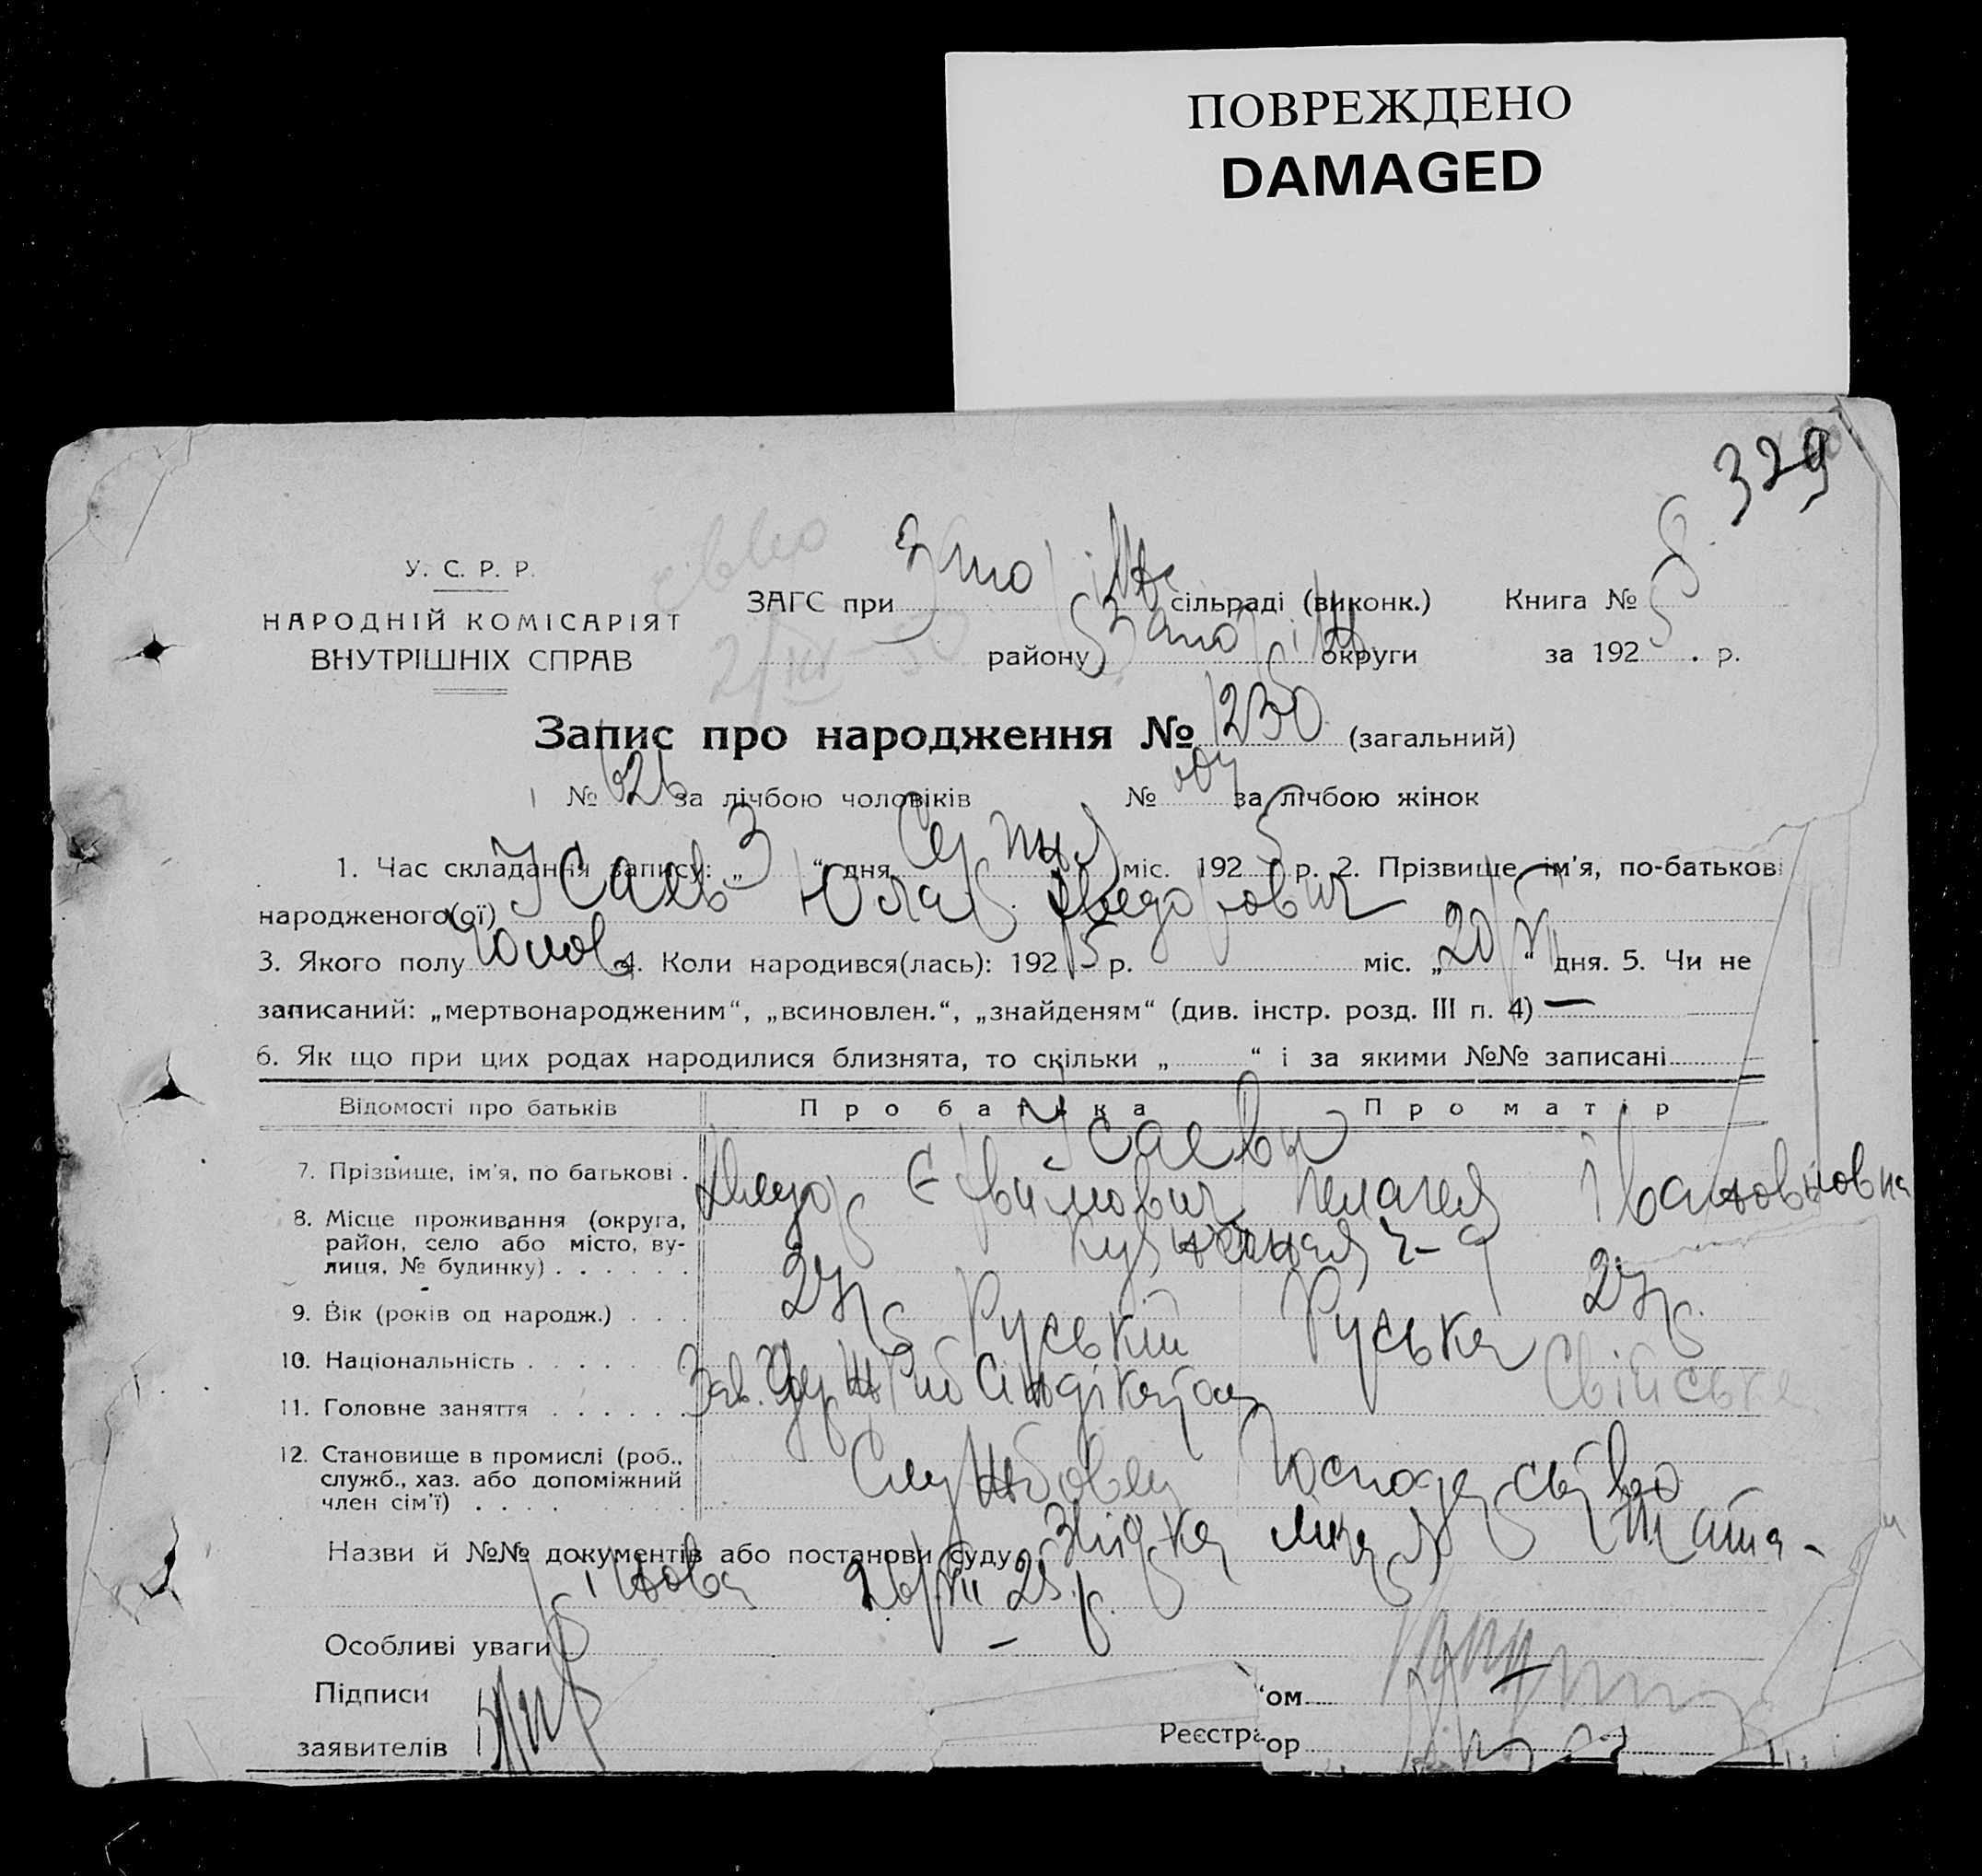 ПОВРЕЖДЕНО
DAMAGED
329
У. С. Р. Р.
НАРОДНІЙ КОМІСАРІЯТ
ВНУТРІШНІХ СПРАВ
ЗАГС при сільраді (виконк.) Книга № 8
району округи за 192 5 р.
Запис про народження № 1230 (загальний)
№ 626 за лічбою чоловіків № за лічбою жінок
1. Час складання запису: „3“ дня Серпня міс. 1925 р. 2. Прізвище, ім'я, по-батькові
народженого(ої) Усаев Федорович
3. Якого полу Чолов. 4. Коли народився(лась): 1925 р. міс. „20/VII“ дня. 5. Чи не
записаний: „мертвонародженим“, „всиновлен.“, „знайденям“ (див. інстр. розд. III п. 4) —
6. Як що при цих родах народилися близнята, то скільки „ “ і за якими №№ записані
Відомості про батьків Про батька Про матір
Усаеви
7. Прізвище, ім'я, по батькові . Федор Єфимович Пелагея Івановновна
8. Місце проживання (округа,
район, село або місто, ву-
лиця, № будинку) . . . . . .
9. Вік (років од народж.) . . . 27 р. 27 р.
10. Національність . . . . . Руський Руська
11. Головне заняття . . . . . . Зав. Свійське
12. Становище в промислі (роб.,
служб., хаз. або допоміжний
член сім'ї) . . . . Службовец Господарство
Назви й №№ документів або постанови суду
26/VII 25 р.
Особливі уваги —
Підписи ом
заявителів Реєстратор